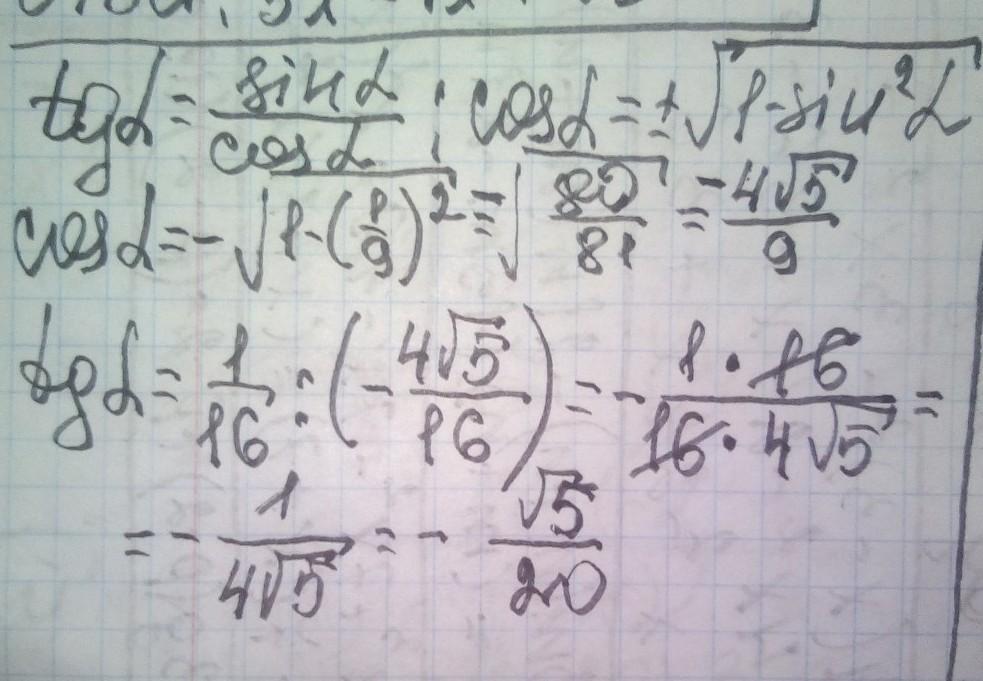 tgα = sinα/cosα ; cosα = ±√(1-sin²α)
cosα = -√(1-(1/9)²) = -√(80/81) = -4√5/9
tgα = 1/16 : (-4√5/16) = - 1·16/(16·4√5) =
= - 1/(4√5) = - √5/20